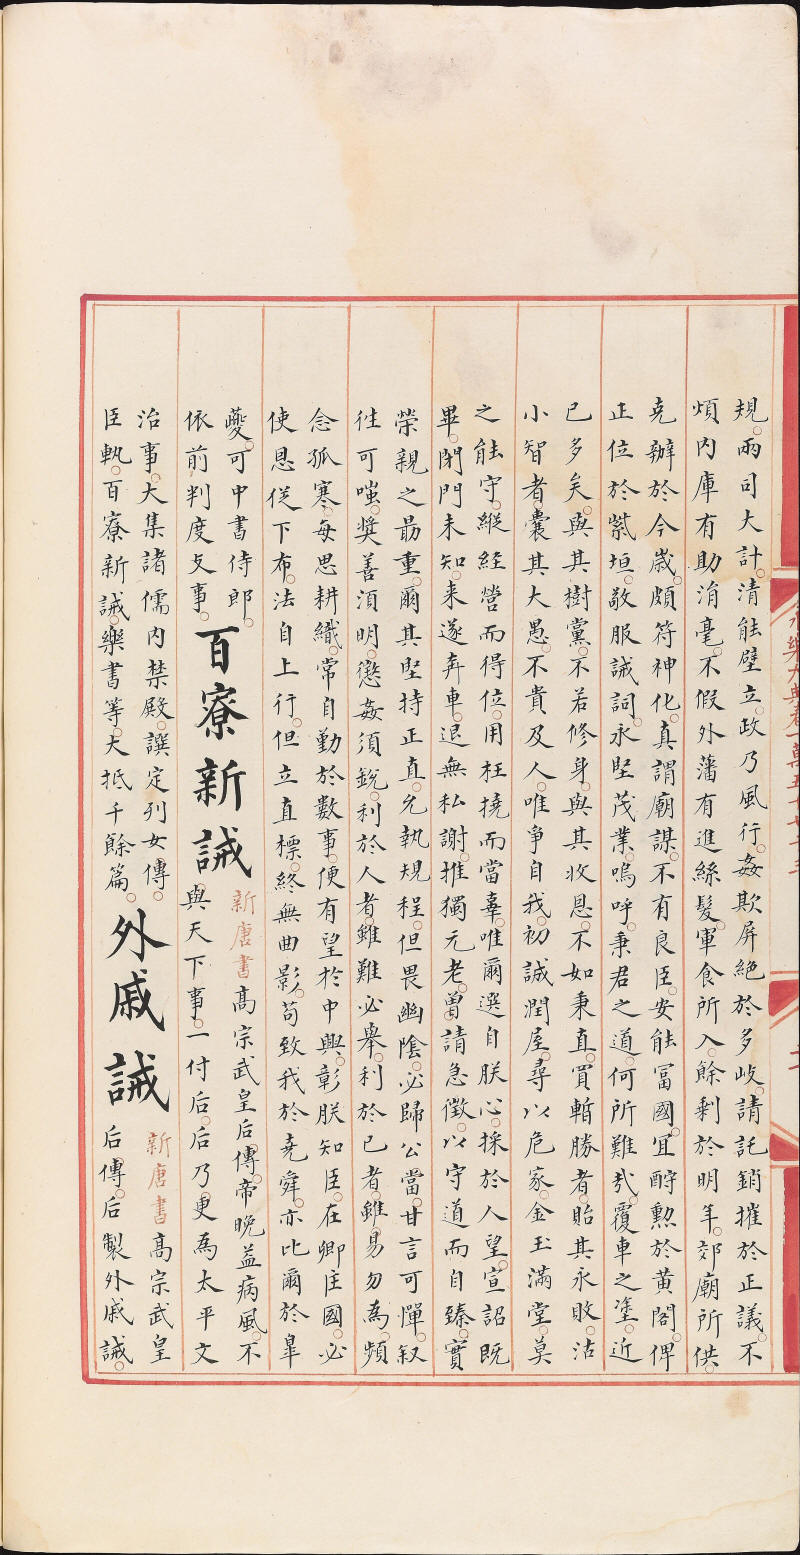 規。兩司大計。清能壁立。政乃風行。姦欺屏絶於多岐。請託銷摧於正議。不
煩内庫有助涓毫。不假外藩有進絲髮。軍食所入。餘剩於明年。郊廟所供。
克辦於今歲。頗符神化。真謂廟謀。不有良臣。安能富國。宜酧勲於黄閣。俾
正位於紫垣。敬服誡詞。永堅茂業。嗚呼。秉君之道。何所難哉。覆車之塗。近
已多矣。與其樹黨。不若修身。與其收恩。不如秉直。買暫勝者。貽其永敗。沽
小智者。囊其大愚。不貴及人。唯爭自我。初誠潤屋。尋以危家。金玉滿堂。莫
之能守。縱經營而得位。用枉撓而當辜。唯爾選自朕心。採於人望。宣詔既
畢。閉門未知。来遂奔車。退無私謝。推獨元老。曽請急徵。以守道而自臻。實
榮親之最重。爾其堅持正直。允執規程。但畏幽隂。必歸公當。甘言可憚。叙
徃可嗤。奨善湏明。懲姦須銳。利於人者。雖難必舉。利於己者。雖易勿為。頻
念孤寒。每思耕織。常自勤於數事。便有望於中興。彰朕知臣。在卿住國。必
使恩從下布。法自上行。但立直標。終無曲影。苟致我於尭舜。亦比爾於臯
夔。可中書侍郎。
依前判度攴事。百寮新誡新唐書髙宗武皇后傳。帝晩益病風。不
與天下事。一付后。后乃更為太平文
治事。大集諸儒内禁殿。譔定列女傳。
臣軌。百寮新誡。樂書等。大抵千餘篇。外戚誡新唐書髙宗武皇
后傳。后製外戚誡。
永樂大典卷一萬